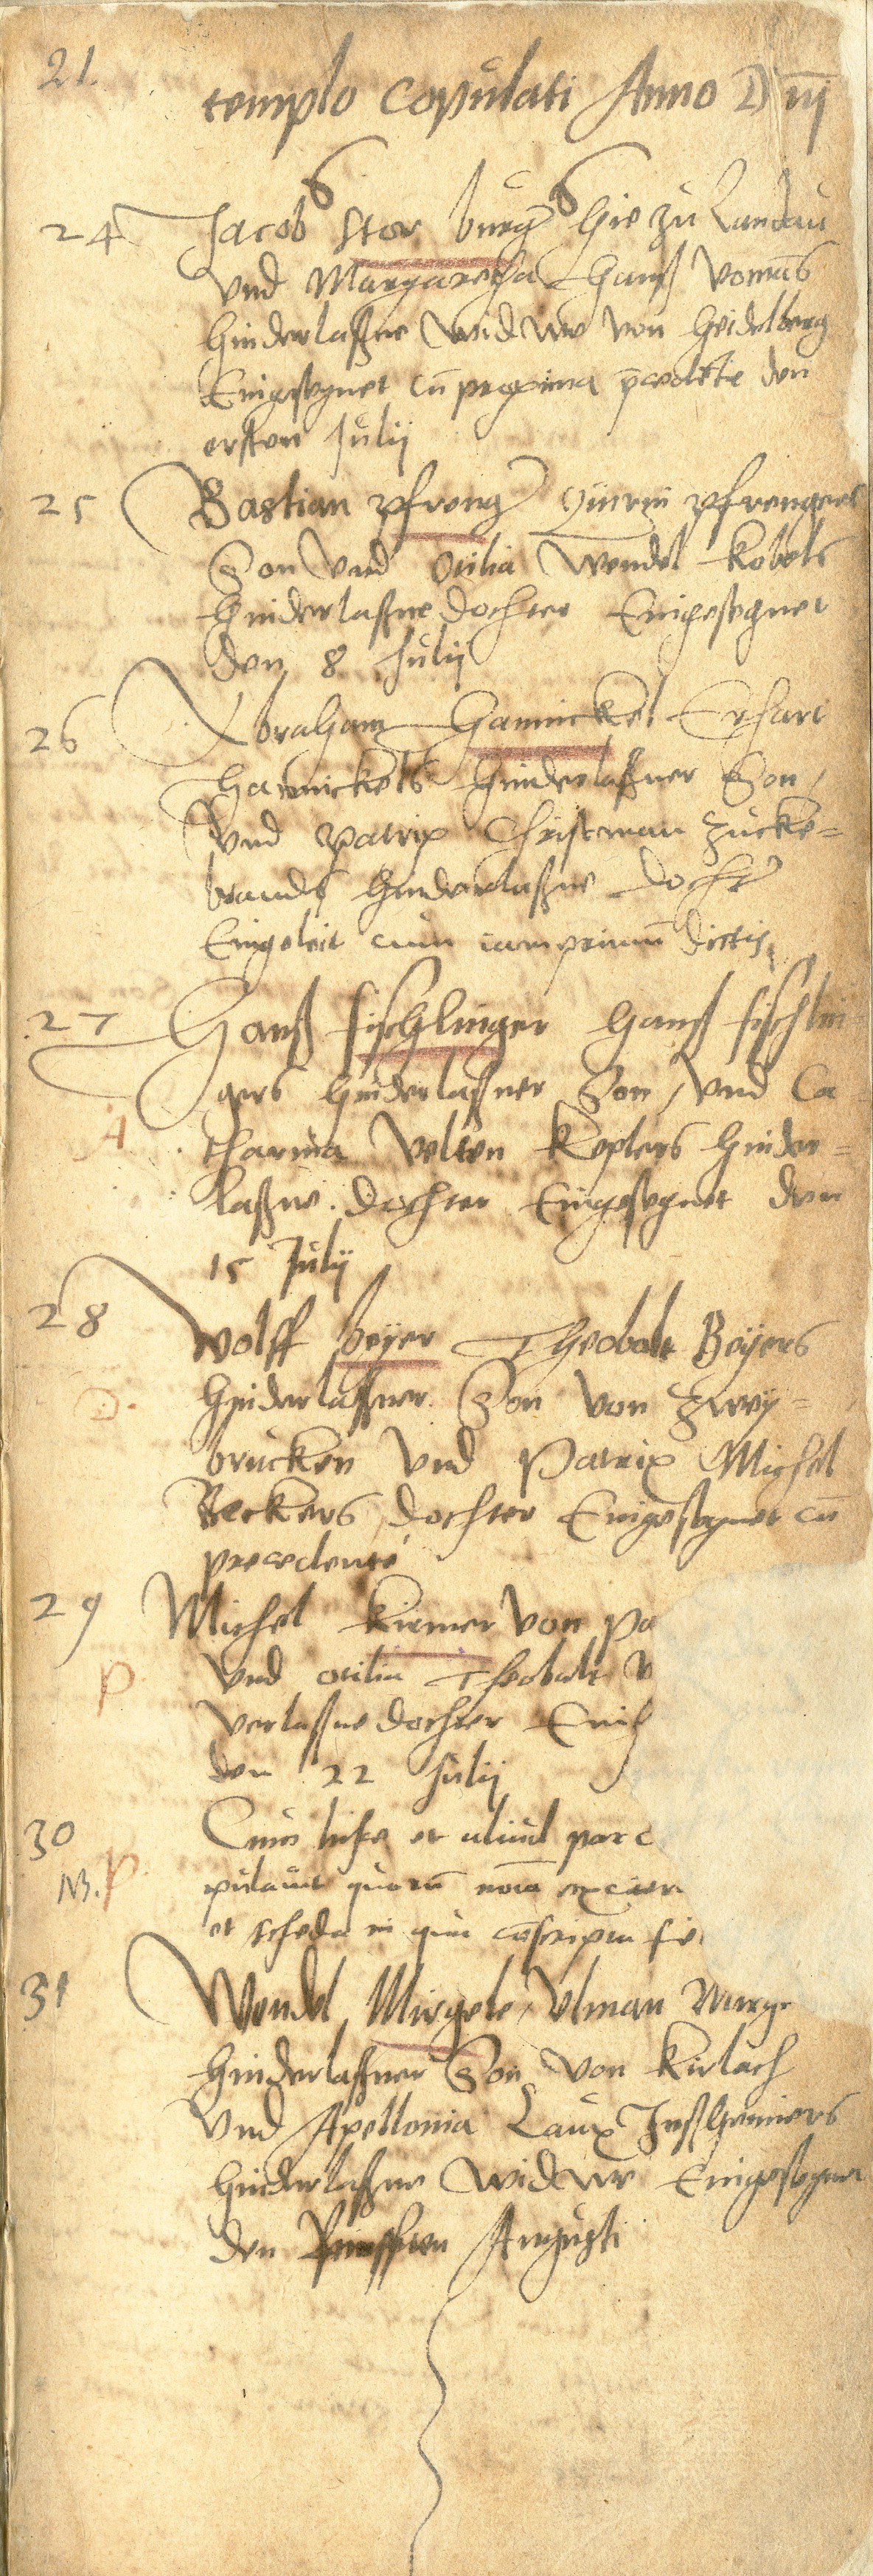 21.
templo copulati Anno D
24 Jacob Stor burg hie zu Landau
vnd Margaretha Hanß
hinderlaßne widwe von Heidelberg
Eingesegnet cū proxima den
ersten Julij
25 Bastian Pfreng Quirin Pfrengers
Son vnd Otilia Wendel Kobels
hinderlaßne dochter Eingesegnet
den 8 Julij
26 Abraham Hannickel Erhart
Hannickels hinderlaßner Son,
vnd Patrix Christman Zucke=
brandts hinderlaßne docht
Eingeleit cum iamprimū dictis
27 Hanß Fischlinger Hanß Fischlin
gers hinderlaßner Son, vnd Ca
A tharina Velten Keplers hinder=
laßne dochter Eingesegnet den
15 Julij
28 Wolff beyer Theobalt Beyers
D. hinderlaßner Son von Zwey=
brücken vnd Patrix Michel
Beckers dochter Eingesegnet cū
precedente
29 Michel Kirmer von Pa
P vnd Otilia Theobalt
verlaßne dochter
den 22 Julij
30 Cum hisce et aliud par c
NB. P. pulauit quorū
et scheda in qua
31 Wendel Mirgele, Vlman Murge
hinderlaßner Son von Kirlach
vnd Apellonia Laux
hinderlaßne widwe Eingesegnet
den Augusti